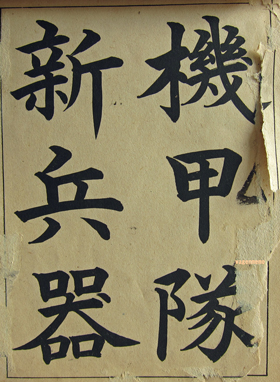 機甲隊
新兵器